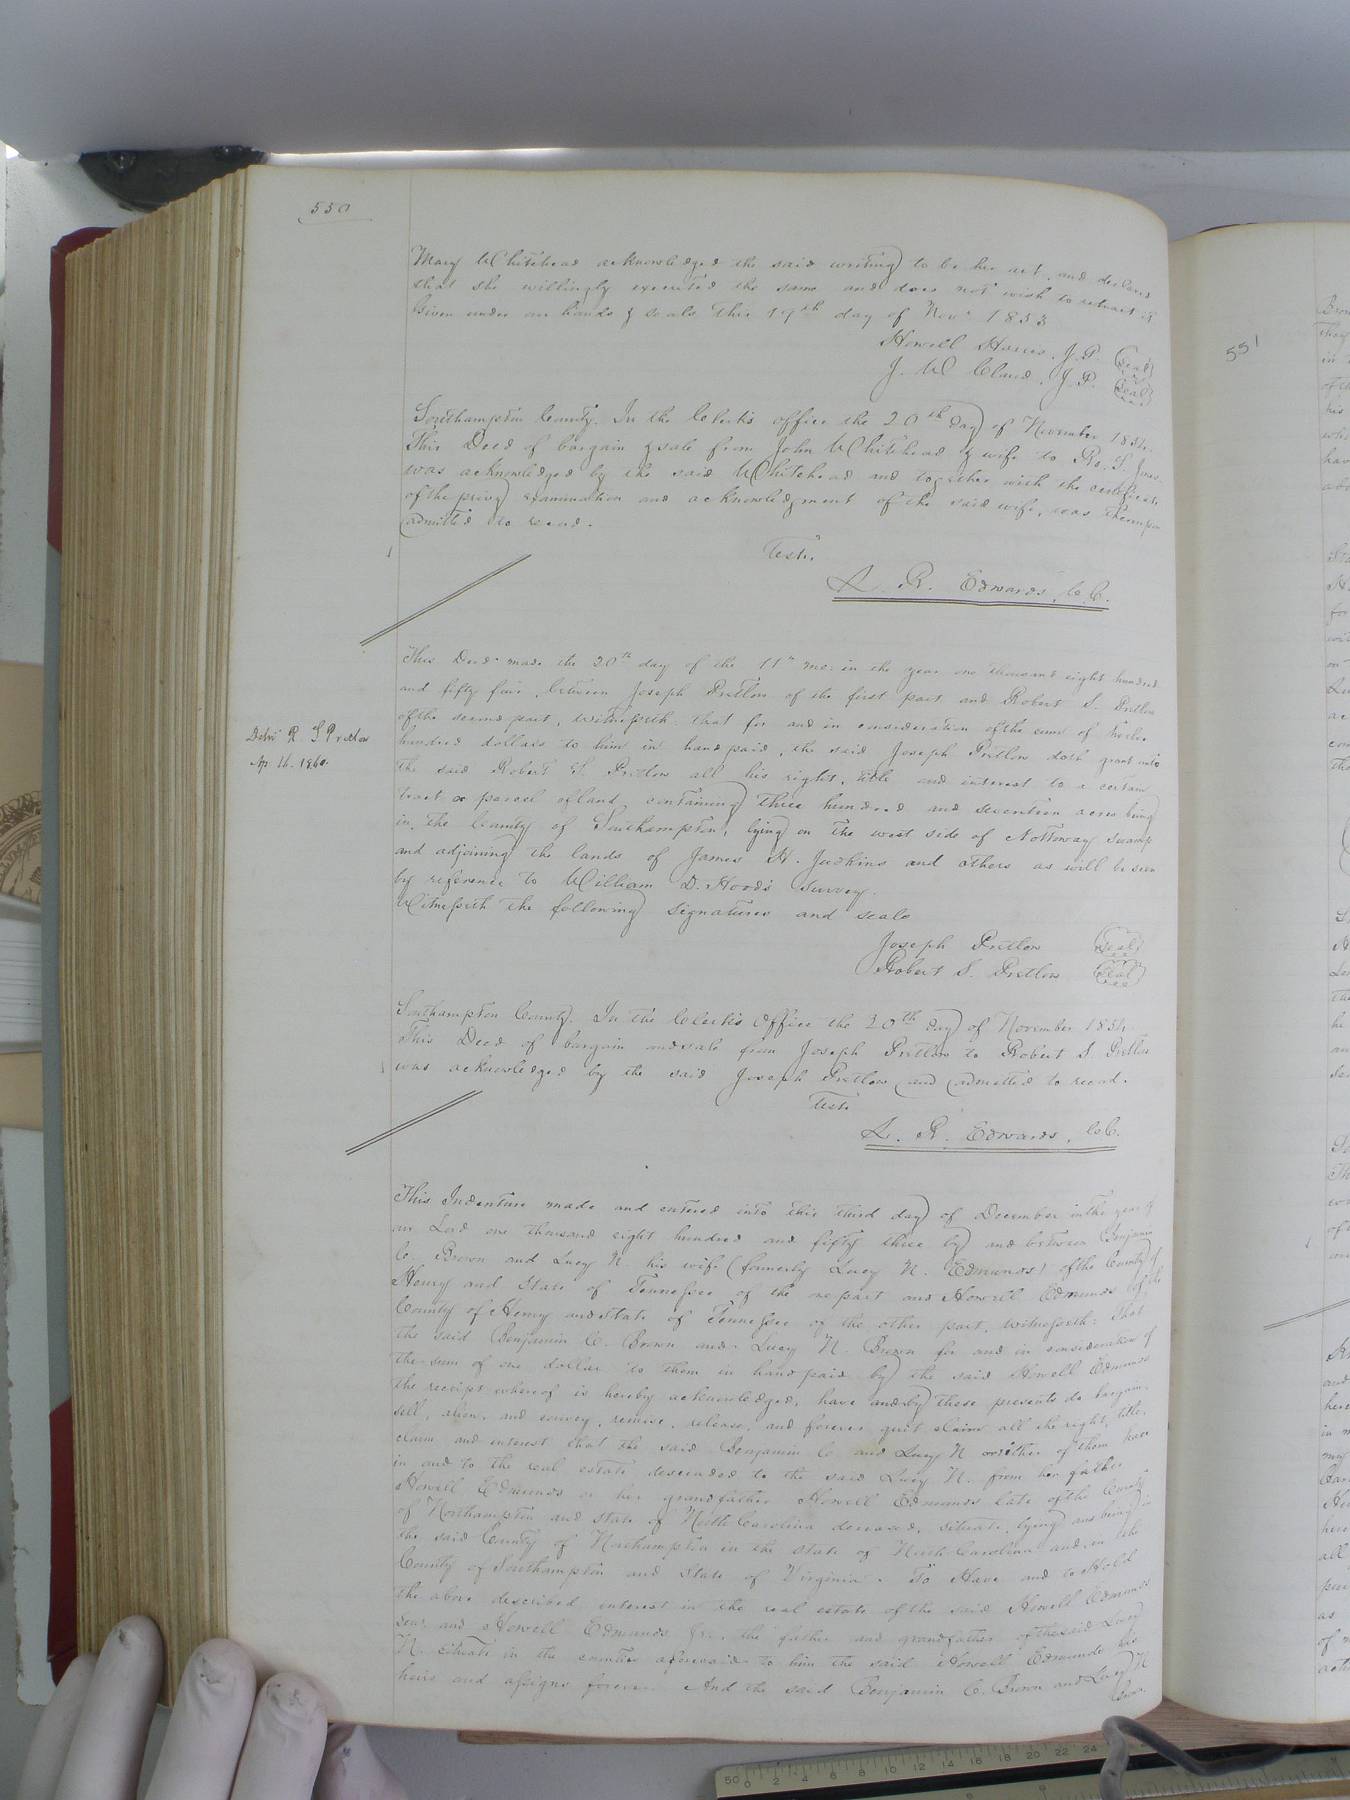 550
Mary Whitehead acknowledged the said writing to be her act, and declared
that she willingly executed the same and does not wish to retract it
Given under our hands & seals this 19th day of Nov. 1853
Howell Harris, J.P. Seal
J. W Claud, J.P. Seal
Southampton County. In the Clerk's office the 20th day of November 1854.
This Deed of bargain & sale from John Whitehead & wife to Ro. S.
was acknowledged by the said Whitehead and together with the certificate
of the privy examination and acknowledgment of the said wife, was thereupon
admitted to record.
Test.
L. R. Edwards, C.C.
This Deed made the 20th day of the 11th mo. in the year one thousand eight hundred
and fifty four, between Joseph Pretlow of the first part and Robert S. Pretlow
of the second part, witnesseth that for and in consideration of the sum of twelve
hundred dollars to him in hand paid, the said Joseph Pretlow doth grant unto
the said Robert S. Pretlow all his right, title and interest to a certain
tract or parcel of land containing three hundred and seventeen acres being
in the County of Southampton, lying on the west side of Nottoway swamp
and adjoining the lands of James H. Judkins and others as will be seen
by reference to William D. Hood's survey.
Witnesseth the following signatures and seals
Delv'd R. S Pretlow
Ap 16. 1860.
Joseph Pretlow Seal
Robert S. Pretlow Seal
Southampton County. In the Clerk's Office the 20th day of November 1854
This Deed of bargain and sale from Joseph Pretlow to Robert S. Pretlow
was acknowledged by the said Joseph Pretlow and admitted to record.
Test.
L. R. Edwards, C.C.
This Indenture made and entered into this third day of December in the year of
our Lord one thousand eight hundred and fifty three by and between Benjamin
C. Brown and Lucy N. his wife (formerly Lucy N. Edmunds) of the County of
Henry and State of Tennessee of the one part and Howell Edmunds of the
County of Henry and State of Tennessee of the other part, witnesseth: That
the said Benjamin C. Brown and Lucy N. Brown for and in consideration of
the sum of one dollar to them in hand paid by the said Howell Edmunds
the receipt whereof is hereby acknowledged, have and by these presents do bargain,
sell, alien, and convey, remise, release, and forever quit claim all the right, title,
claim and interest that the said Benjamin C. and Lucy N or either of them have
in and to the real estate descended to the said Lucy N. from her father
Howell Edmunds or her grandfather Howell Edmunds late of the County
of Northampton and State of North Carolina deceased, situate, lying and being in
the said County of Northampton in the State of North Carolina and in the
County of Southampton and State of Virginia. To Have and to Hold
the above described interest in the real estate of the said Howell Edmunds
Senr. and Howell Edmunds Jr., the father and grandfather of the said Lucy
N. situate in the counties aforesaid to him the said Howell Edmunds his
heirs and assigns forever. And the said Benjamin C. Brown and Lucy N
Brown
551